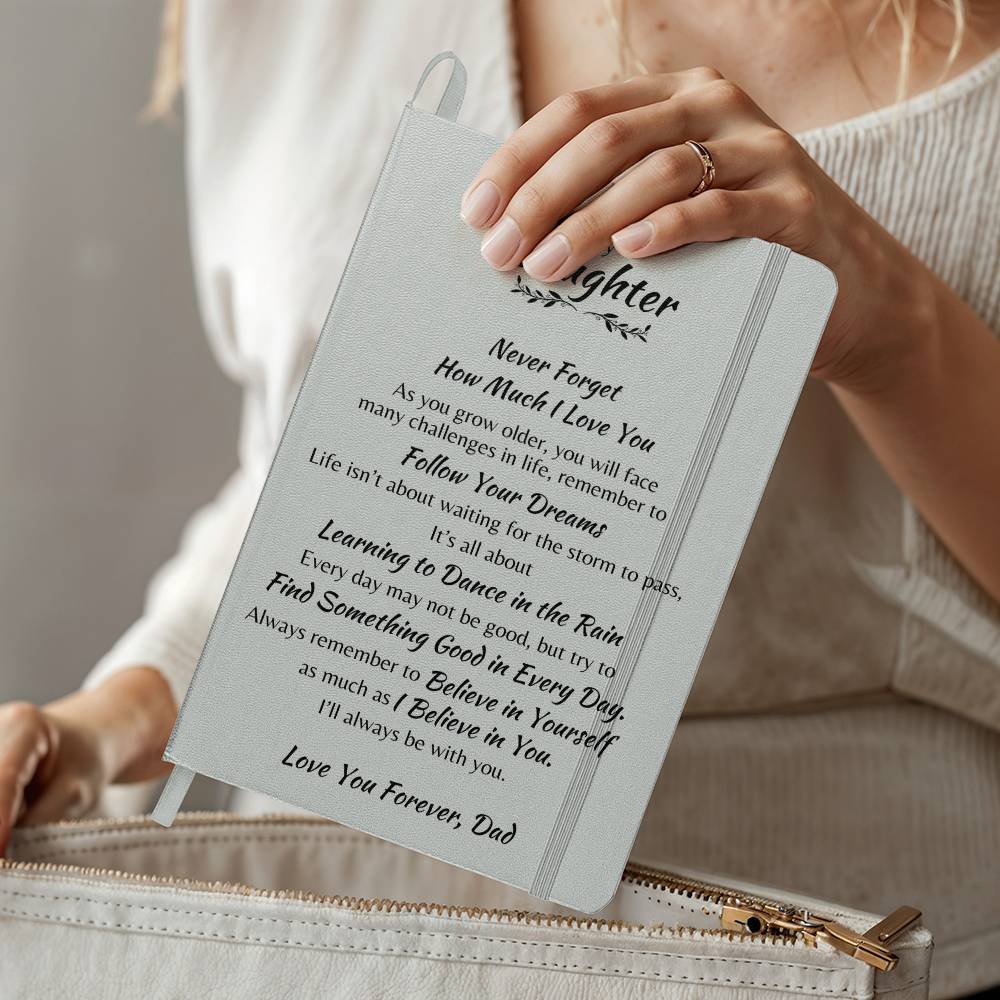 Never Forget
How Much I Love You
As you grow older, you will face
many challenges in life, remember to
Follow Your Dreams
Life isn't about waiting for the storm to pass,
It's all about
Learning to Dance in the Rain
Every day may not be good, but try to
Find Something Good in Every Day.
Always remember to Believe in Yourself
as much as I Believe in You.
I'll always be with you.
Love You Forever, Dad